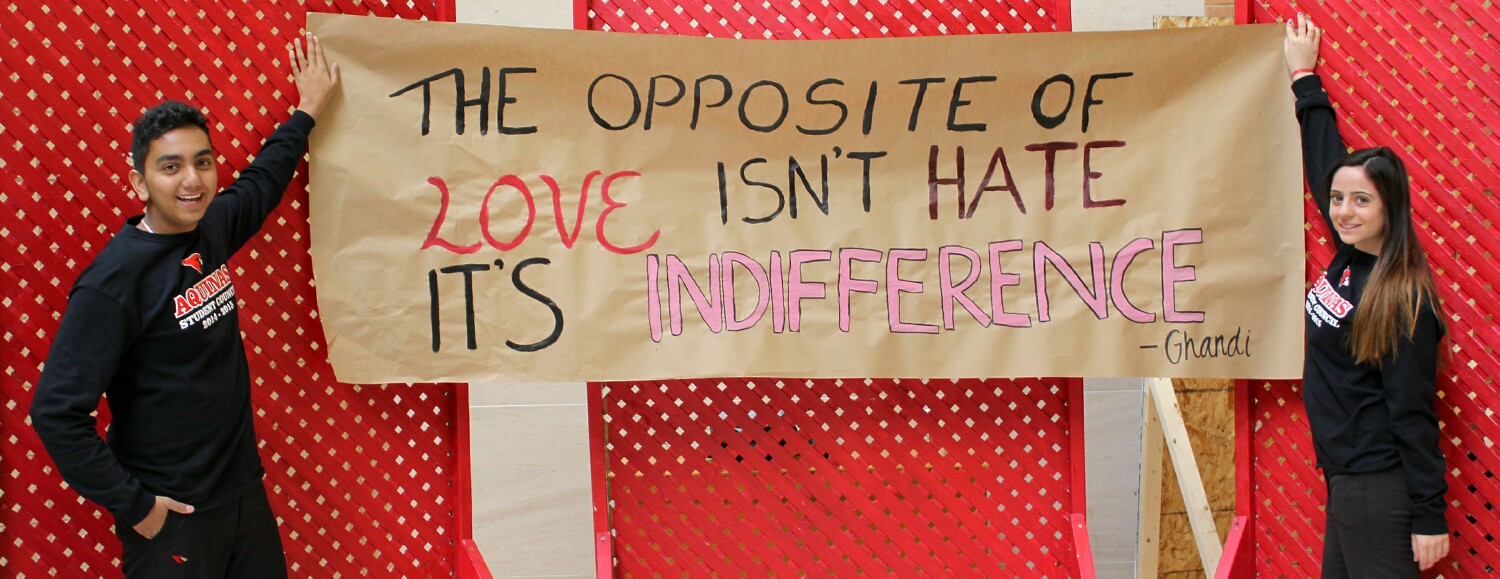 THE OPPOSITE OF
LOVE ISN'T HATE
IT'S INDIFFERENCE
-Ghandi
AQUINAS
STUDENT COUNCIL
2014-2015